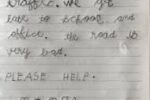 traffic. We get
late to school and
office. the road is
very bad.
PLEASE HELP.